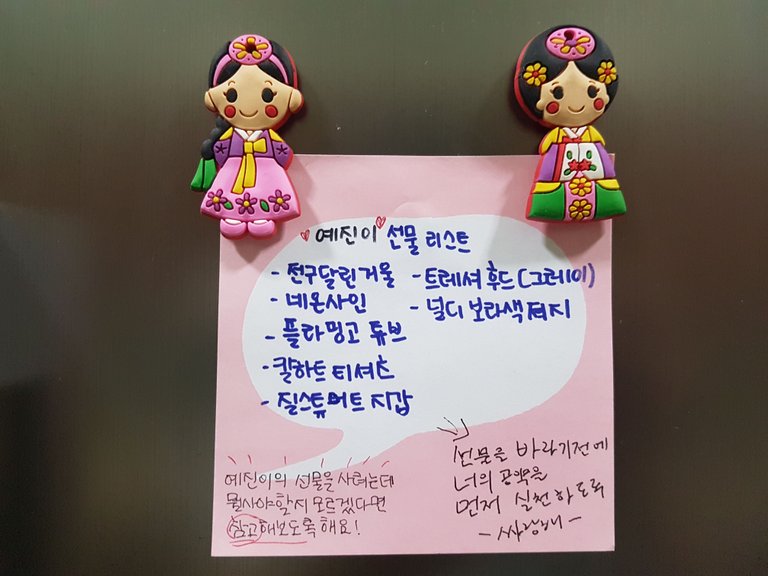 예진이 선물 리스트
- 전구달린거울
- 네온사인
- 플라밍고 튜브
- 칼하트 티셔츠
- 질스튜어트 지갑
- 트레셔 후드 (그레이)
- 널디 보라색 져지
예진이의 선물을 사려는데
뭘사야할지 모르겠다면
참고해보도록해요!
선물을 바라기전에
너의 공약을
먼저 실천하도록